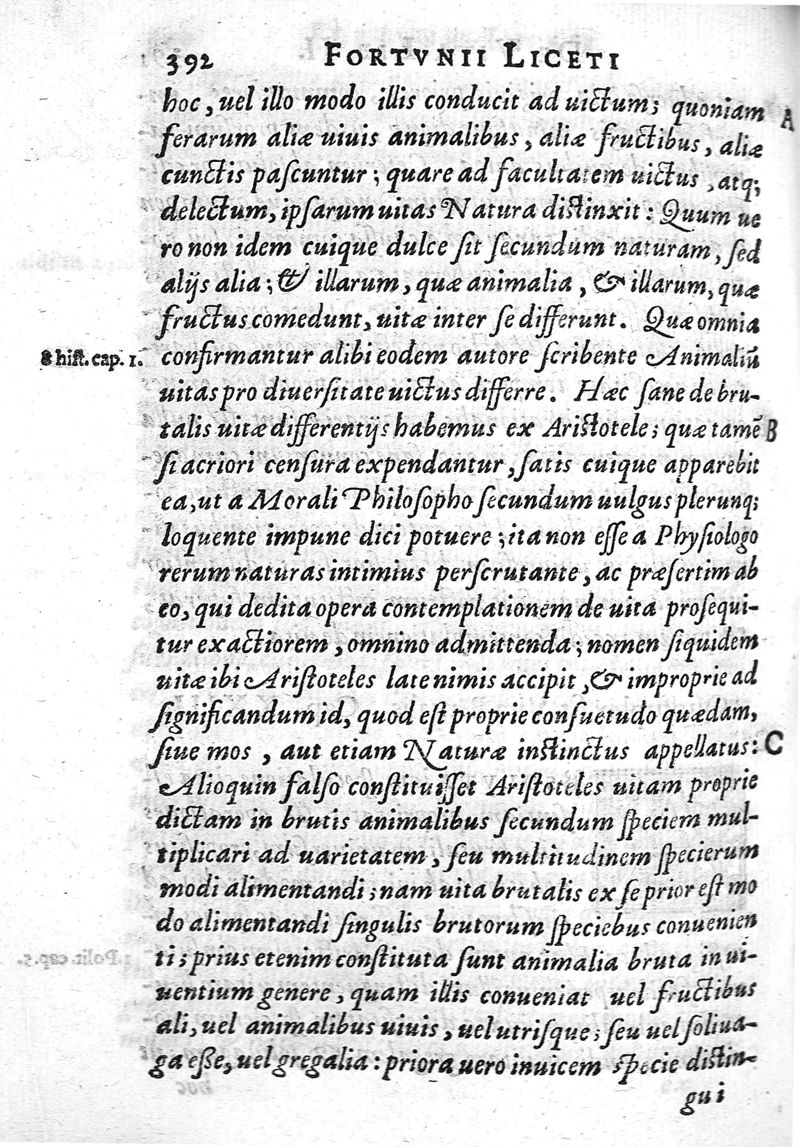 392 FORTVNII LICETI
hoc, uel illo modo illis conducit ad uictum; quoniam A
ferarum aliæ uiuis animalibus, aliæ fructibus, aliæ
cunctis pascuntur; quare ad facultatem uictus, atq;
delectum, ipsarum uitas Natura distinxit: Quum ue
ro non idem cuique dulce sit secundum naturam, sed
alijs alia; & illarum, quæ animalia, & illarum, quæ
fructus comedunt, uitæ inter se differunt. Quæ omnia
8 hist. cap. 1. confirmantur alibi eodem autore scribente Animaliũ
uitas pro diuersitate uictus differre. Hæc sane de bru-
talis uitæ differentijs habemus ex Aristotele; quæ tamẽ B
si acriori censura expendantur, satis cuique apparebit
ea, ut a Morali Philosopho secundum uulgus plerunq;
loquente impune dici potuere; ita non esse a Physiologo
rerum naturas intimius perscrutante, ac præsertim ab
eo, qui dedita opera contemplationem de uita prosequi-
tur exactiorem, omnino admittenda; nomen siquidem
uitæ ibi Aristoteles late nimis accipit, & improprie ad
significandum id, quod est proprie consuetudo quædam,
siue mos, aut etiam Naturæ instinctus appellatus: C
Alioquin falso constituisset Aristoteles uitam proprie
dictam in brutis animalibus secundum speciem mul-
tiplicari ad uarietatem, seu multitudinem specierum
modi alimentandi; nam uita brutalis ex se prior est mo
do alimentandi singulis brutorum speciebus conuenien
ti; prius etenim constituta sunt animalia bruta in ui-
uentium genere, quam illis conueniat uel fructibus
ali, uel animalibus uiuis, uel utrisque; seu uel soliua-
ga esse, uel gregalia: priora uero inuicem specie distin-
gui